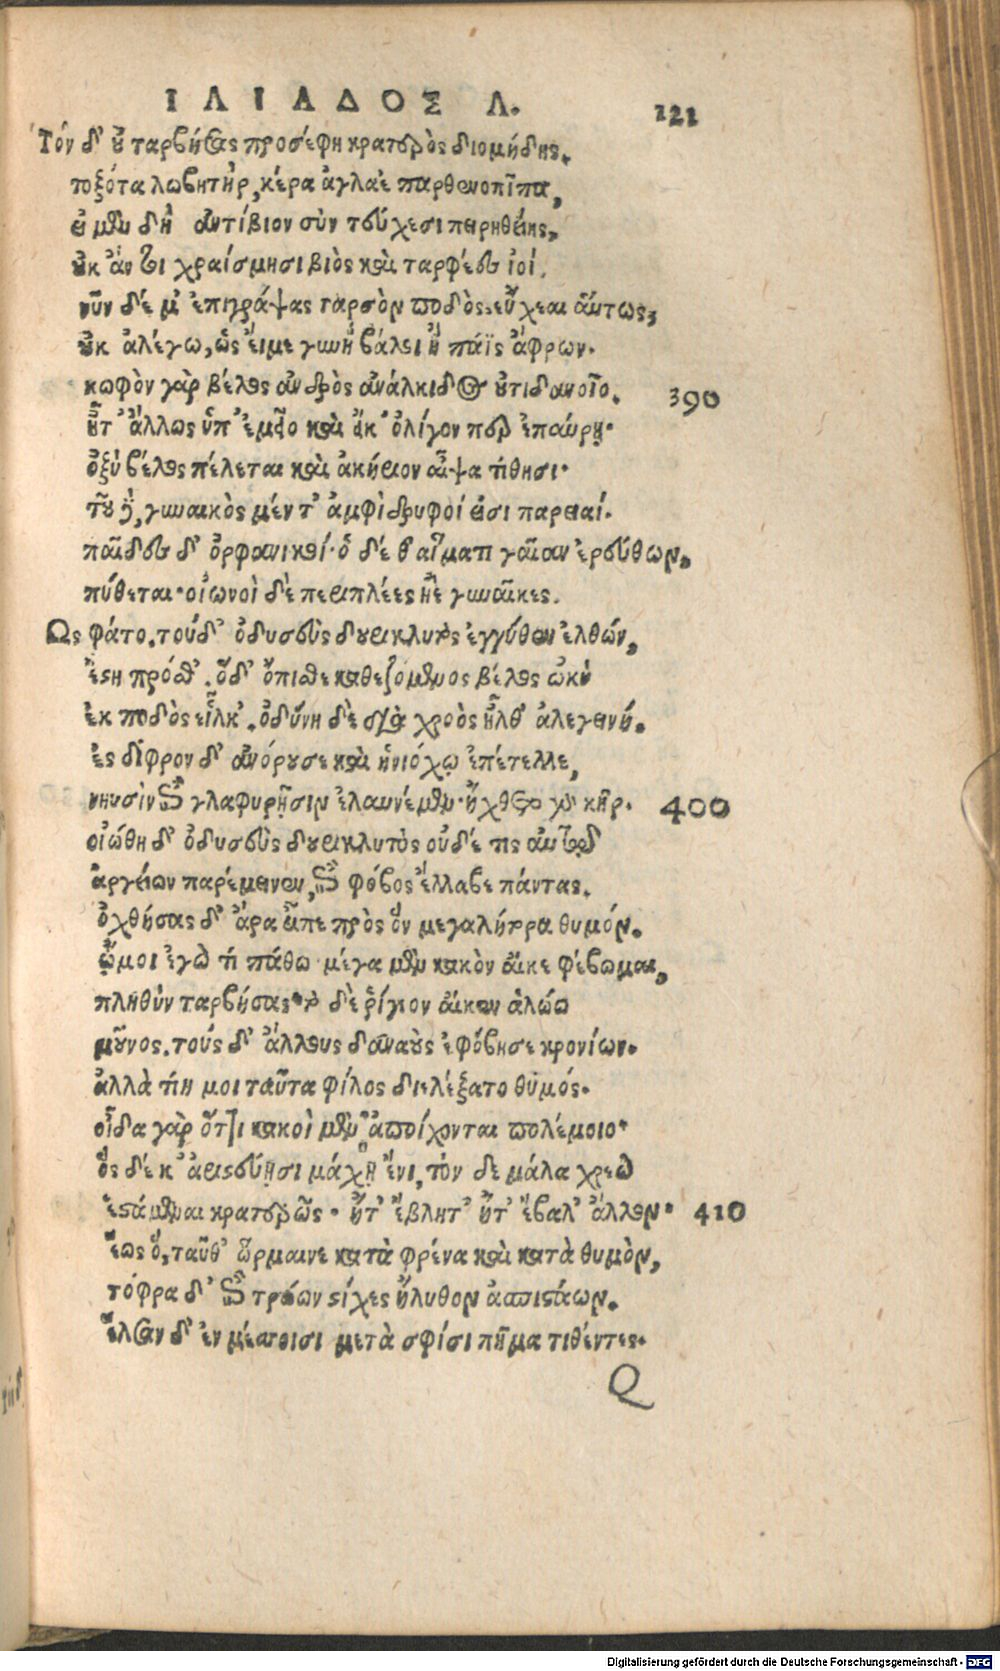 ΙΛΙΑΔΟΣ Λ. 121
Τὸν δ' οὐ ταρβήσας προσέφη κρατερὸς διομήδης.
τοξότα λωβητὴρ, κέρα ἀγλαὲ παρθενοπῖπα,
εἰ μὲν δὴ ἀντίβιον σὺν τεύχεσι πειρηθείης,
οὐκ ἄν τοι χραίσμησι βιὸς καὶ ταρφέες ἰοί.
νῦν δέ μ' ἐπιγράψας ταρσὸν ποδὸς εὔχεαι αὔτως,
οὐκ ἀλέγω, ὡς εἴ με γυνὴ βάλοι ἢ πάϊς ἄφρων.
κωφὸν γὰρ βέλος ἀνδρὸς ἀνάλκιδος οὐτιδανοῖο. 390
ἦτ' ἄλλως ὑπ' ἐμεῖο καὶ εἴκ' ὀλίγον περ ἐπαύρῃ.
ὀξὺ βέλος πέλεται καὶ ἀκήριον αἶψα τίθησι.
τοῦ δὲ, γυναικὸς μέν τ' ἀμφίδρυφοί εἰσι παρειαί.
παῖδες δ' ὀρφανικοί. ὁ δέ θ' αἵματι γαῖαν ἐρεύθων,
πύθεται. οἰωνοὶ δὲ περιπλέες ἠὲ γυναῖκες.
Ως φάτο. τοῦ δ' ὀδυσεὺς δουρικλυτὸς ἐγγύθεν ἐλθών,
ἔστη πρόσθ'. ὅδ' ὄπισθε καθεζόμενος βέλος ὠκὺ
ἐκ ποδὸς εἷλκ'. ὀδύνη δὲ διὰ χροὸς ἦλθ' ἀλεγεινή.
ἐς δίφρον δ' ἀνόρουσε καὶ ἡνιόχῳ ἐπέτελλε,
νηυσὶν ἐπὶ γλαφυρῇσιν ἐλαυνέμεν. ἤχθετο γὰρ κῆρ. 400
οἰώθη δ' ὀδυσεὺς δουρικλυτὸς οὐδέ τις αὐτῷ
ἀργείων παρέμεινεν, ἐπεὶ φόβος ἔλλαβε πάντας.
ὀχθήσας δ' ἄρα εἶπε πρὸς ὃν μεγαλήτορα θυμόν.
ᾤμοι ἐγὼ τί πάθω. μέγα μὲν κακὸν αἴκε φέβωμαι,
πληθὺν ταρβήσας. τὸ δὲ ῥίγιον αἴκεν ἁλώω
μοῦνος. τοὺς δ' ἄλλους δαναοὺς ἐφόβησε κρονίων.
ἀλλὰ τίη μοι ταῦτα φίλος διελέξατο θυμός.
οἶδα γὰρ ὅττι κακοὶ μὲν ἀποίχονται πολέμοιο.
ὃς δέ κ' ἀριστεύησι μάχῃ ἔνι, τὸν δὲ μάλα χρεὼ
ἑστάμεναι κρατερῶς. ἤτ' ἔβλητ' ἤτ' ἔβαλ' ἄλλον. 410
ἕως ὁ, ταῦθ' ὥρμαινε κατὰ φρένα καὶ κατὰ θυμὸν,
τόφρα δ' ἐπὶ τρώων στίχες ἤλυθον ἀσπιστάων.
ἔλσαν δ' ἐν μέσσοισι μετὰ σφίσι πῆμα τιθέντες.
Q
Digitalisierung gefördert durch die Deutsche Forschungsgemeinschaft - DFG